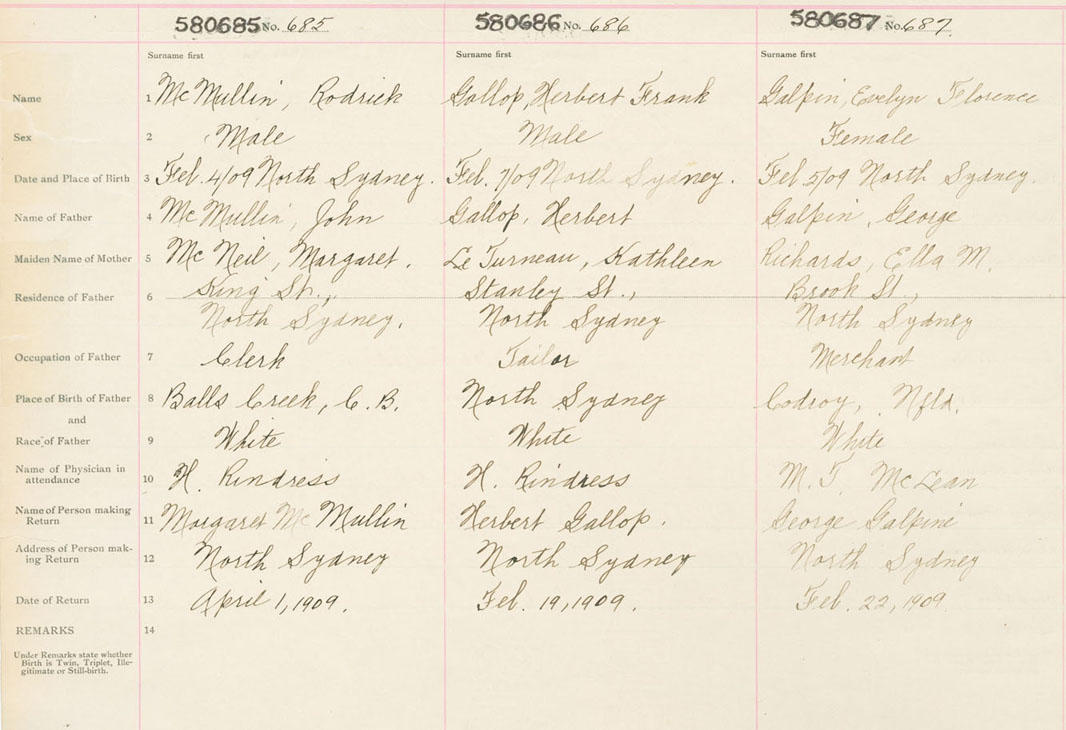 580685 No. 685 580686 No. 686 580687 No. 687
Surname first Surname first Surname first
Name 1 McMullin, Rodrick Gallop, Herbert Frank Galpin, Evelyn Florence
Sex 2 Male Male Female
Date and Place of Birth 3 Feb. 4/09 North Sydney. Feb. 7/09 North Sydney. Feb 5/09 North Sydney.
Name of Father 4 McMullin, John Gallop, Herbert Galpin, George
Maiden Name of Mother 5 McNeil, Margaret. Le Turneau, Kathleen Richards, Ella M.
Residence of Father 6 King St., Stanley St., Brook St,
North Sydney. North Sydney North Sydney
Occupation of Father 7 Clerk Tailor Merchant
Place of Birth of Father 8 Balls Creek, C.B. North Sydney Codroy, Nfld.
and
Race of Father 9 White White White
Name of Physician in
attendance 10 H. Rindress H. Rindress M. T. McLean
Name of Person making
Return 11 Margaret McMullin Herbert Gallop. George Galpine
Address of Person mak-
ing Return 12 North Sydney North Sydney North Sydney
Date of Return 13 April 1, 1909. Feb. 19, 1909. Feb. 22, 1909
REMARKS 14
Under Remarks state whether
Birth is Twin, Triplet, Ille-
gitimate or Still-birth.